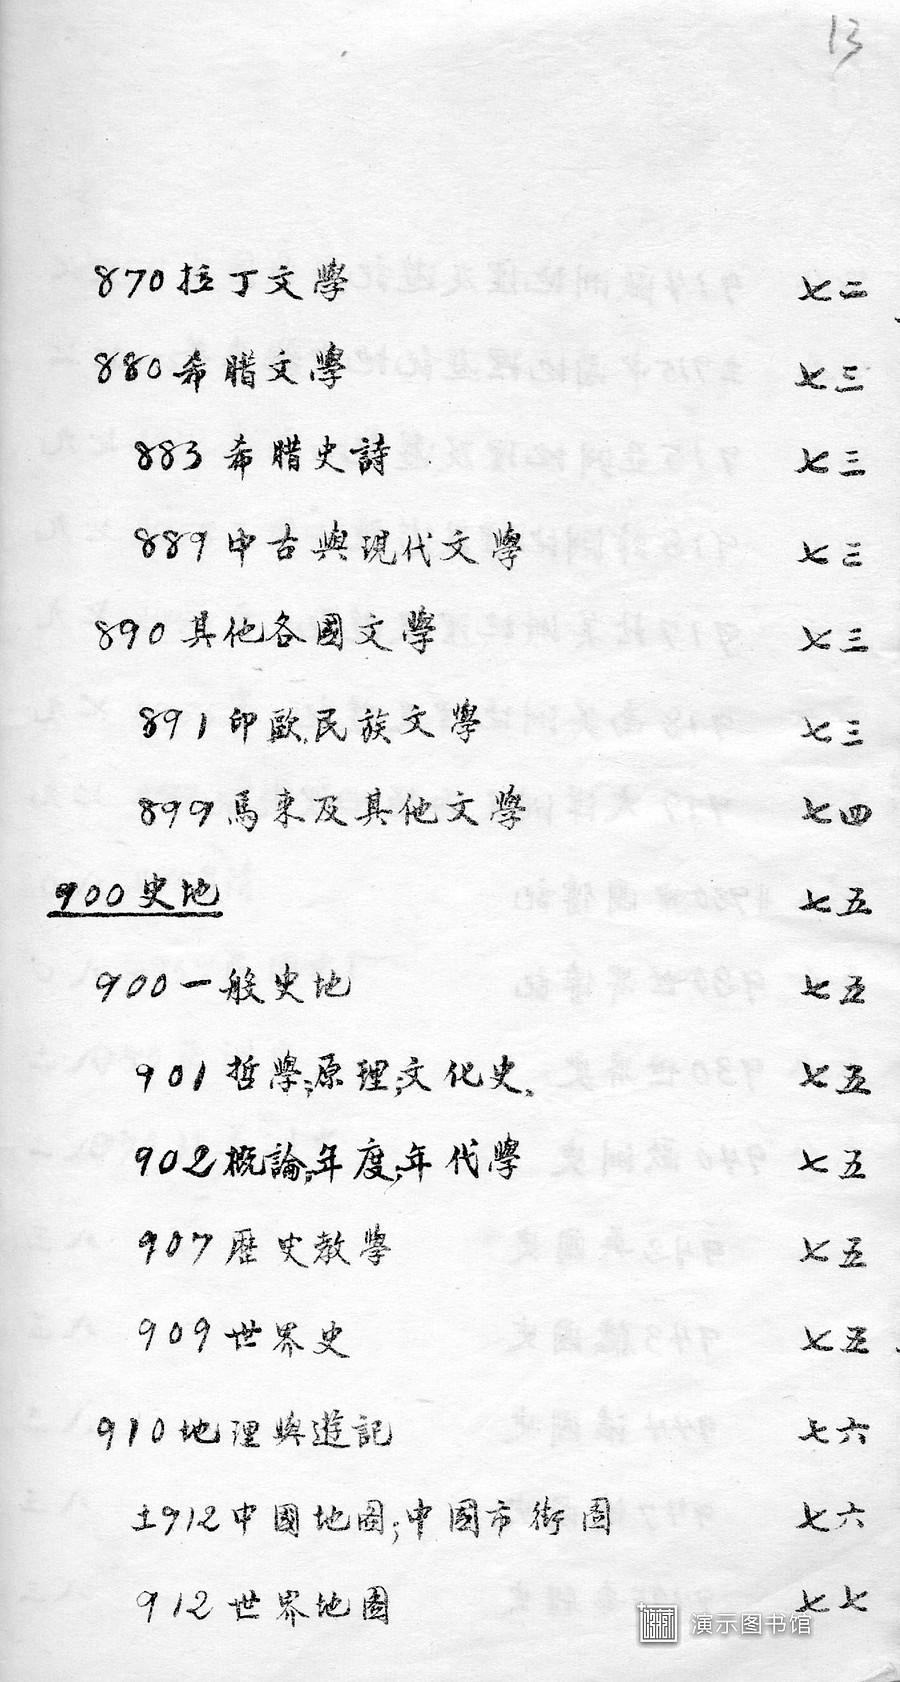 13
870 拉丁文學 七二
880 希腊文學 七三
883 希腊史詩 七三
889 中古與現代文學 七三
890 其他各國文學 七三
891 印歐民族文學 七三
899 馬来及其他文學 七四
900 史地 七五
900 一般史地 七五
901 哲學;原理;文化史、 七五
902 概論;年度;年代學 七五
907 歷史教學 七五
909 世界史 七五
910 地理與遊記 七六
±912 中國地图;中國市街图 七六
912 世界地图 七七
演示图书馆